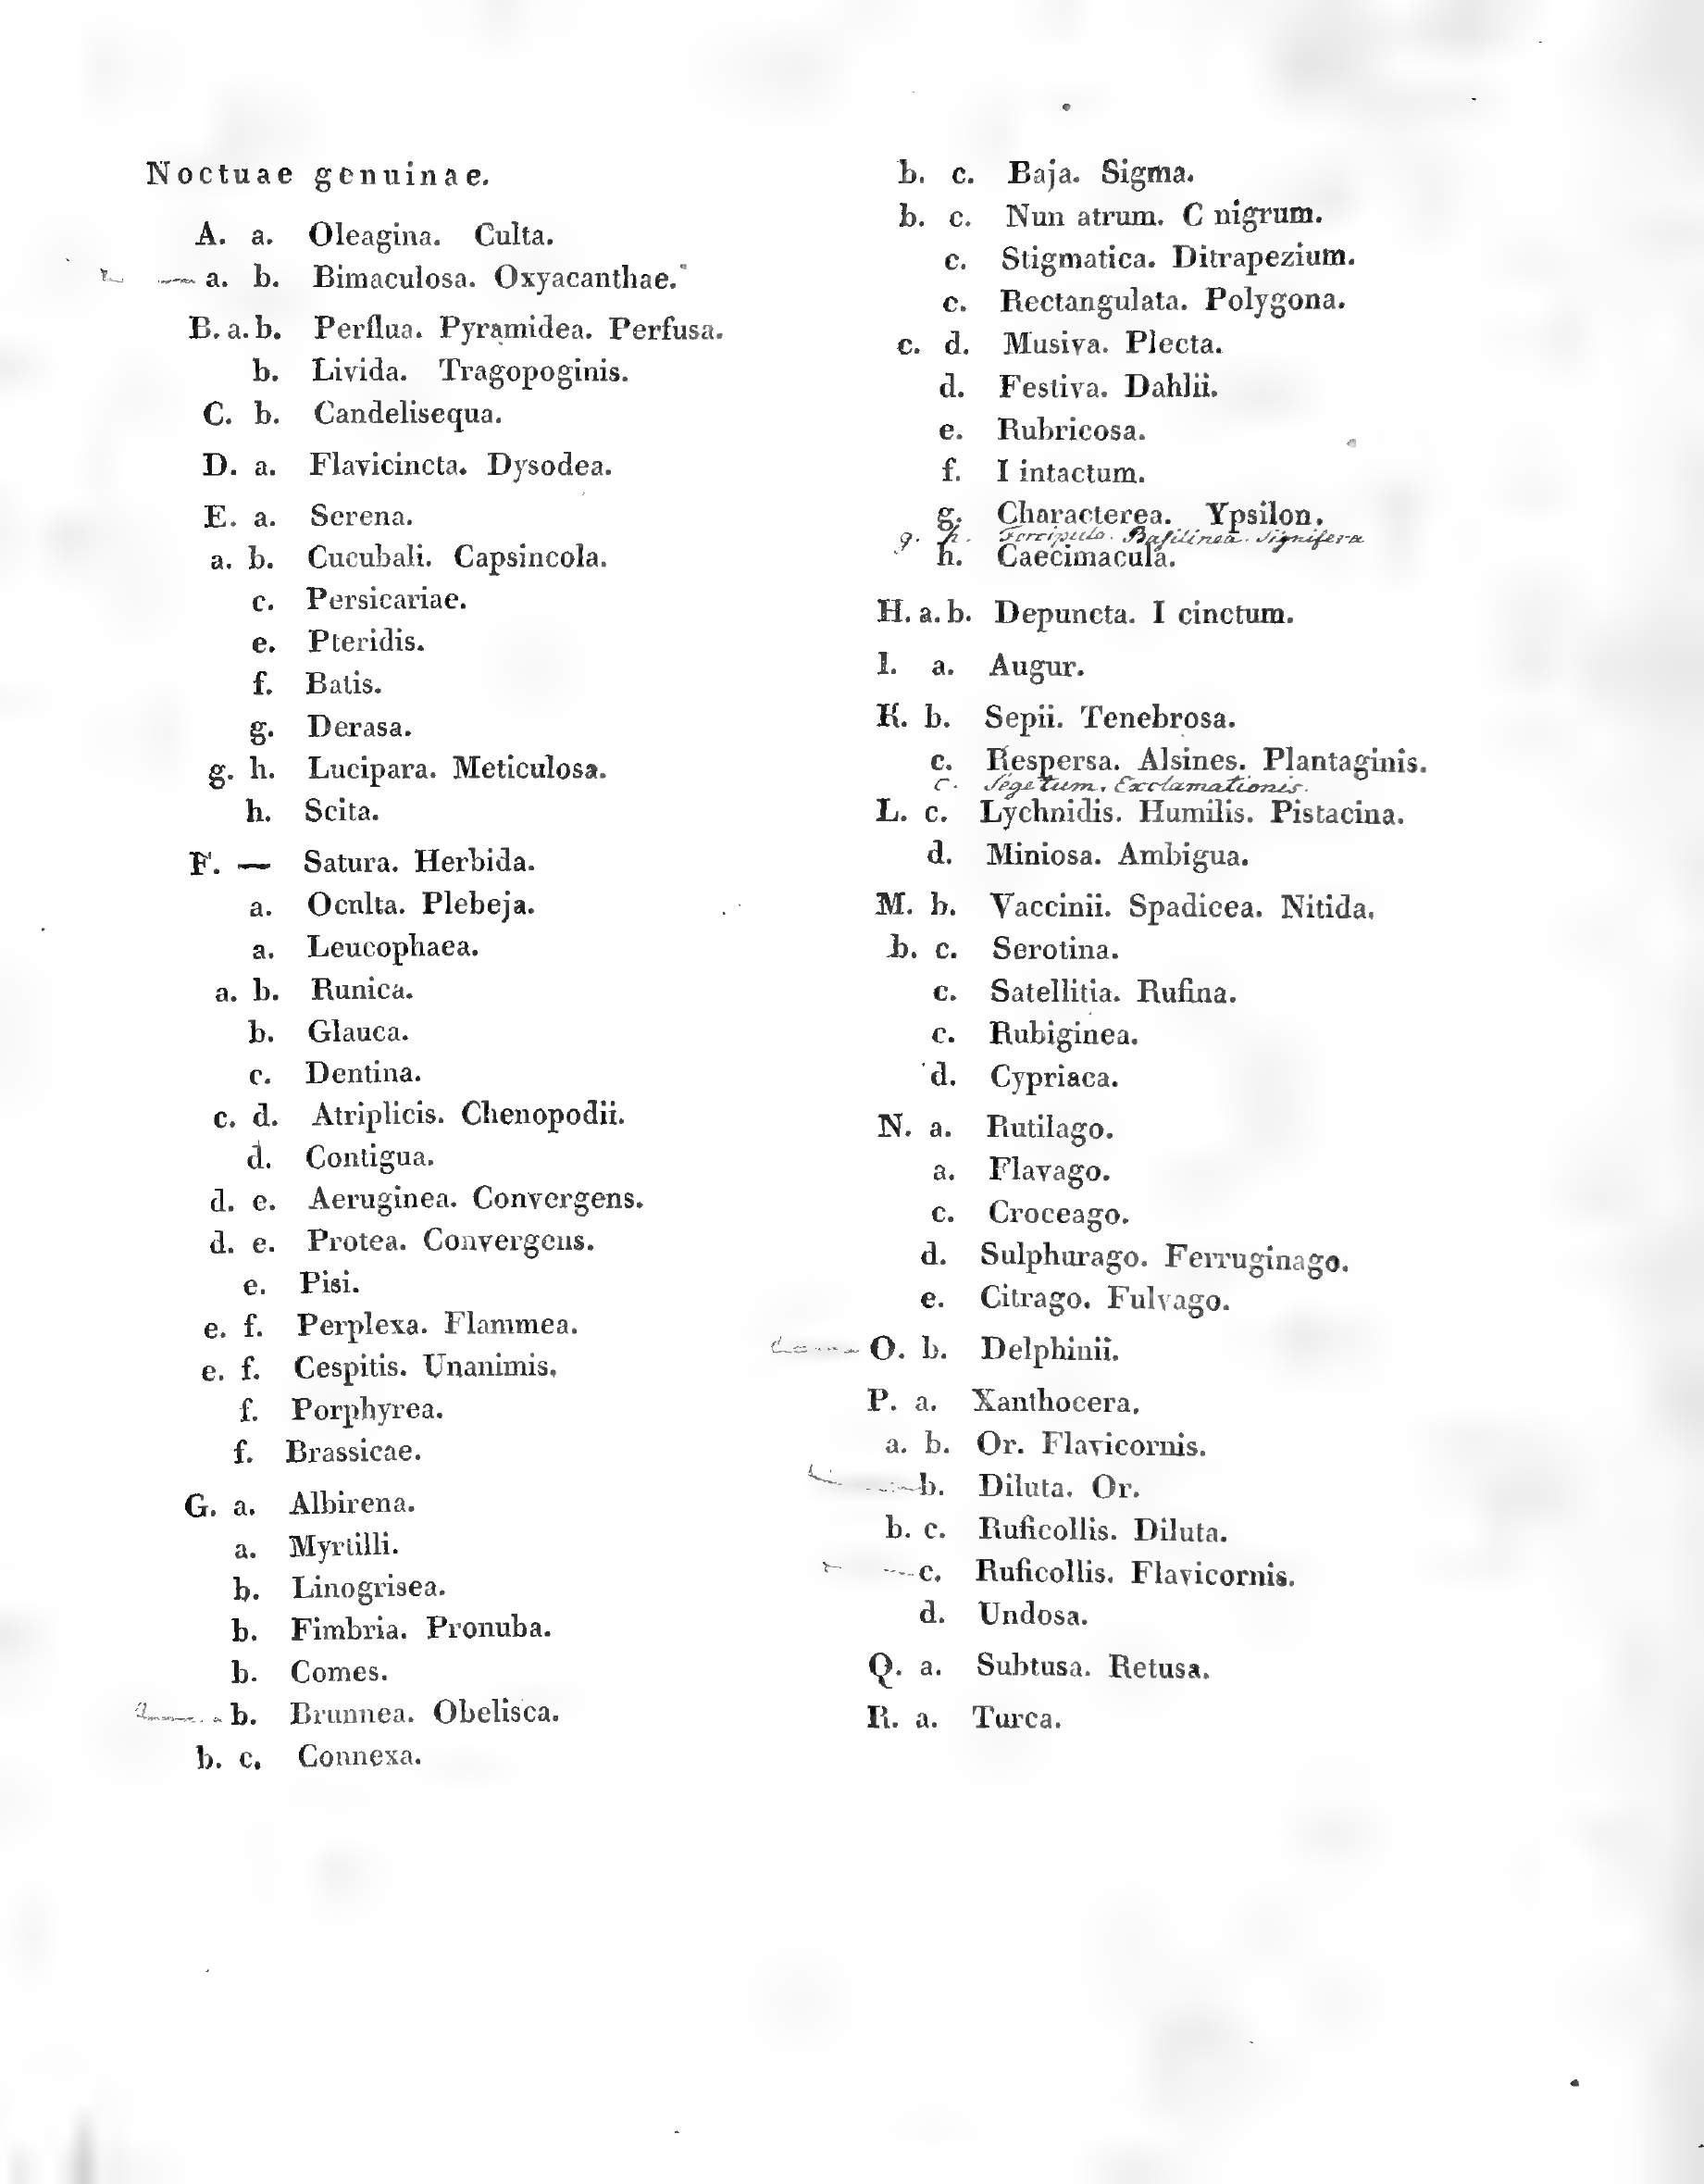 Noctuae genuinae.
A. a. Oleagina. Culta.
a. b. Bimaculosa. Oxyacanthae.
B. a. b. Perflua. Pyramidea. Perfusa.
b. Livida. Tragopoginis.
C. b. Candelisequa.
D. a. Flavicincta. Dysodea.
E. a. Serena.
a. b. Cucubali. Capsincola.
c. Persicariae.
e. Pteridis.
f. Batis.
g. Derasa.
g. h. Lucipara. Meticulosa.
h. Scita.
F. — Satura. Herbida.
a. Ocnlta. Plebeja.
a. Leucophaea.
a. b. Runica.
b. Glauca.
c. Dentina.
c. d. Atriplicis. Chenopodii.
d. Contigua.
d. e. Aeruginea. Convergens.
d. e. Protea. Convergens.
e. Pisi.
e. f. Perplexa. Flammea.
e. f. Cespitis. Unanimis.
f. Porphyrea.
f. Brassicae.
G. a. Albirena.
a. Myrtilli.
b. Linogrisea.
b. Fimbria. Pronuba.
b. Comes.
b. Brunnea. Obelisca.
b. c. Connexa.
b. c. Baja. Sigma.
b. c. Nun atrum. C nigrum.
c. Stigmatica. Ditrapezium.
c. Rectangulata. Polygona.
c. d. Musiva. Plecta.
d. Festiva. Dahlii.
e. Rubricosa.
f. I intactum.
g. Characterea. Ypsilon.
g. h. Basilinea. Signifera
h. Caecimacula.
H. a. b. Depuncta. I cinctum.
I. a. Augur.
K. b. Sepii. Tenebrosa.
c. Respersa. Alsines. Plantaginis.
c. Segetum. Exclamationis.
L. c. Lychnidis. Humilis. Pistacina.
d. Miniosa. Ambigua.
M. b. Vaccinii. Spadicea. Nitida.
b. c. Serotina.
c. Satellitia. Rufina.
c. Rubiginea.
d. Cypriaca.
N. a. Rutilago.
a. Flavago.
c. Croceago.
d. Sulphurago. Ferruginago.
e. Citrago. Fulvago.
O. b. Delphinii.
P. a. Xanthocera.
a. b. Or. Flavicornis.
b. Diluta. Or.
b. c. Ruficollis. Diluta.
c. Ruficollis. Flavicornis.
d. Undosa.
Q. a. Subtusa. Retusa.
R. a. Turca.